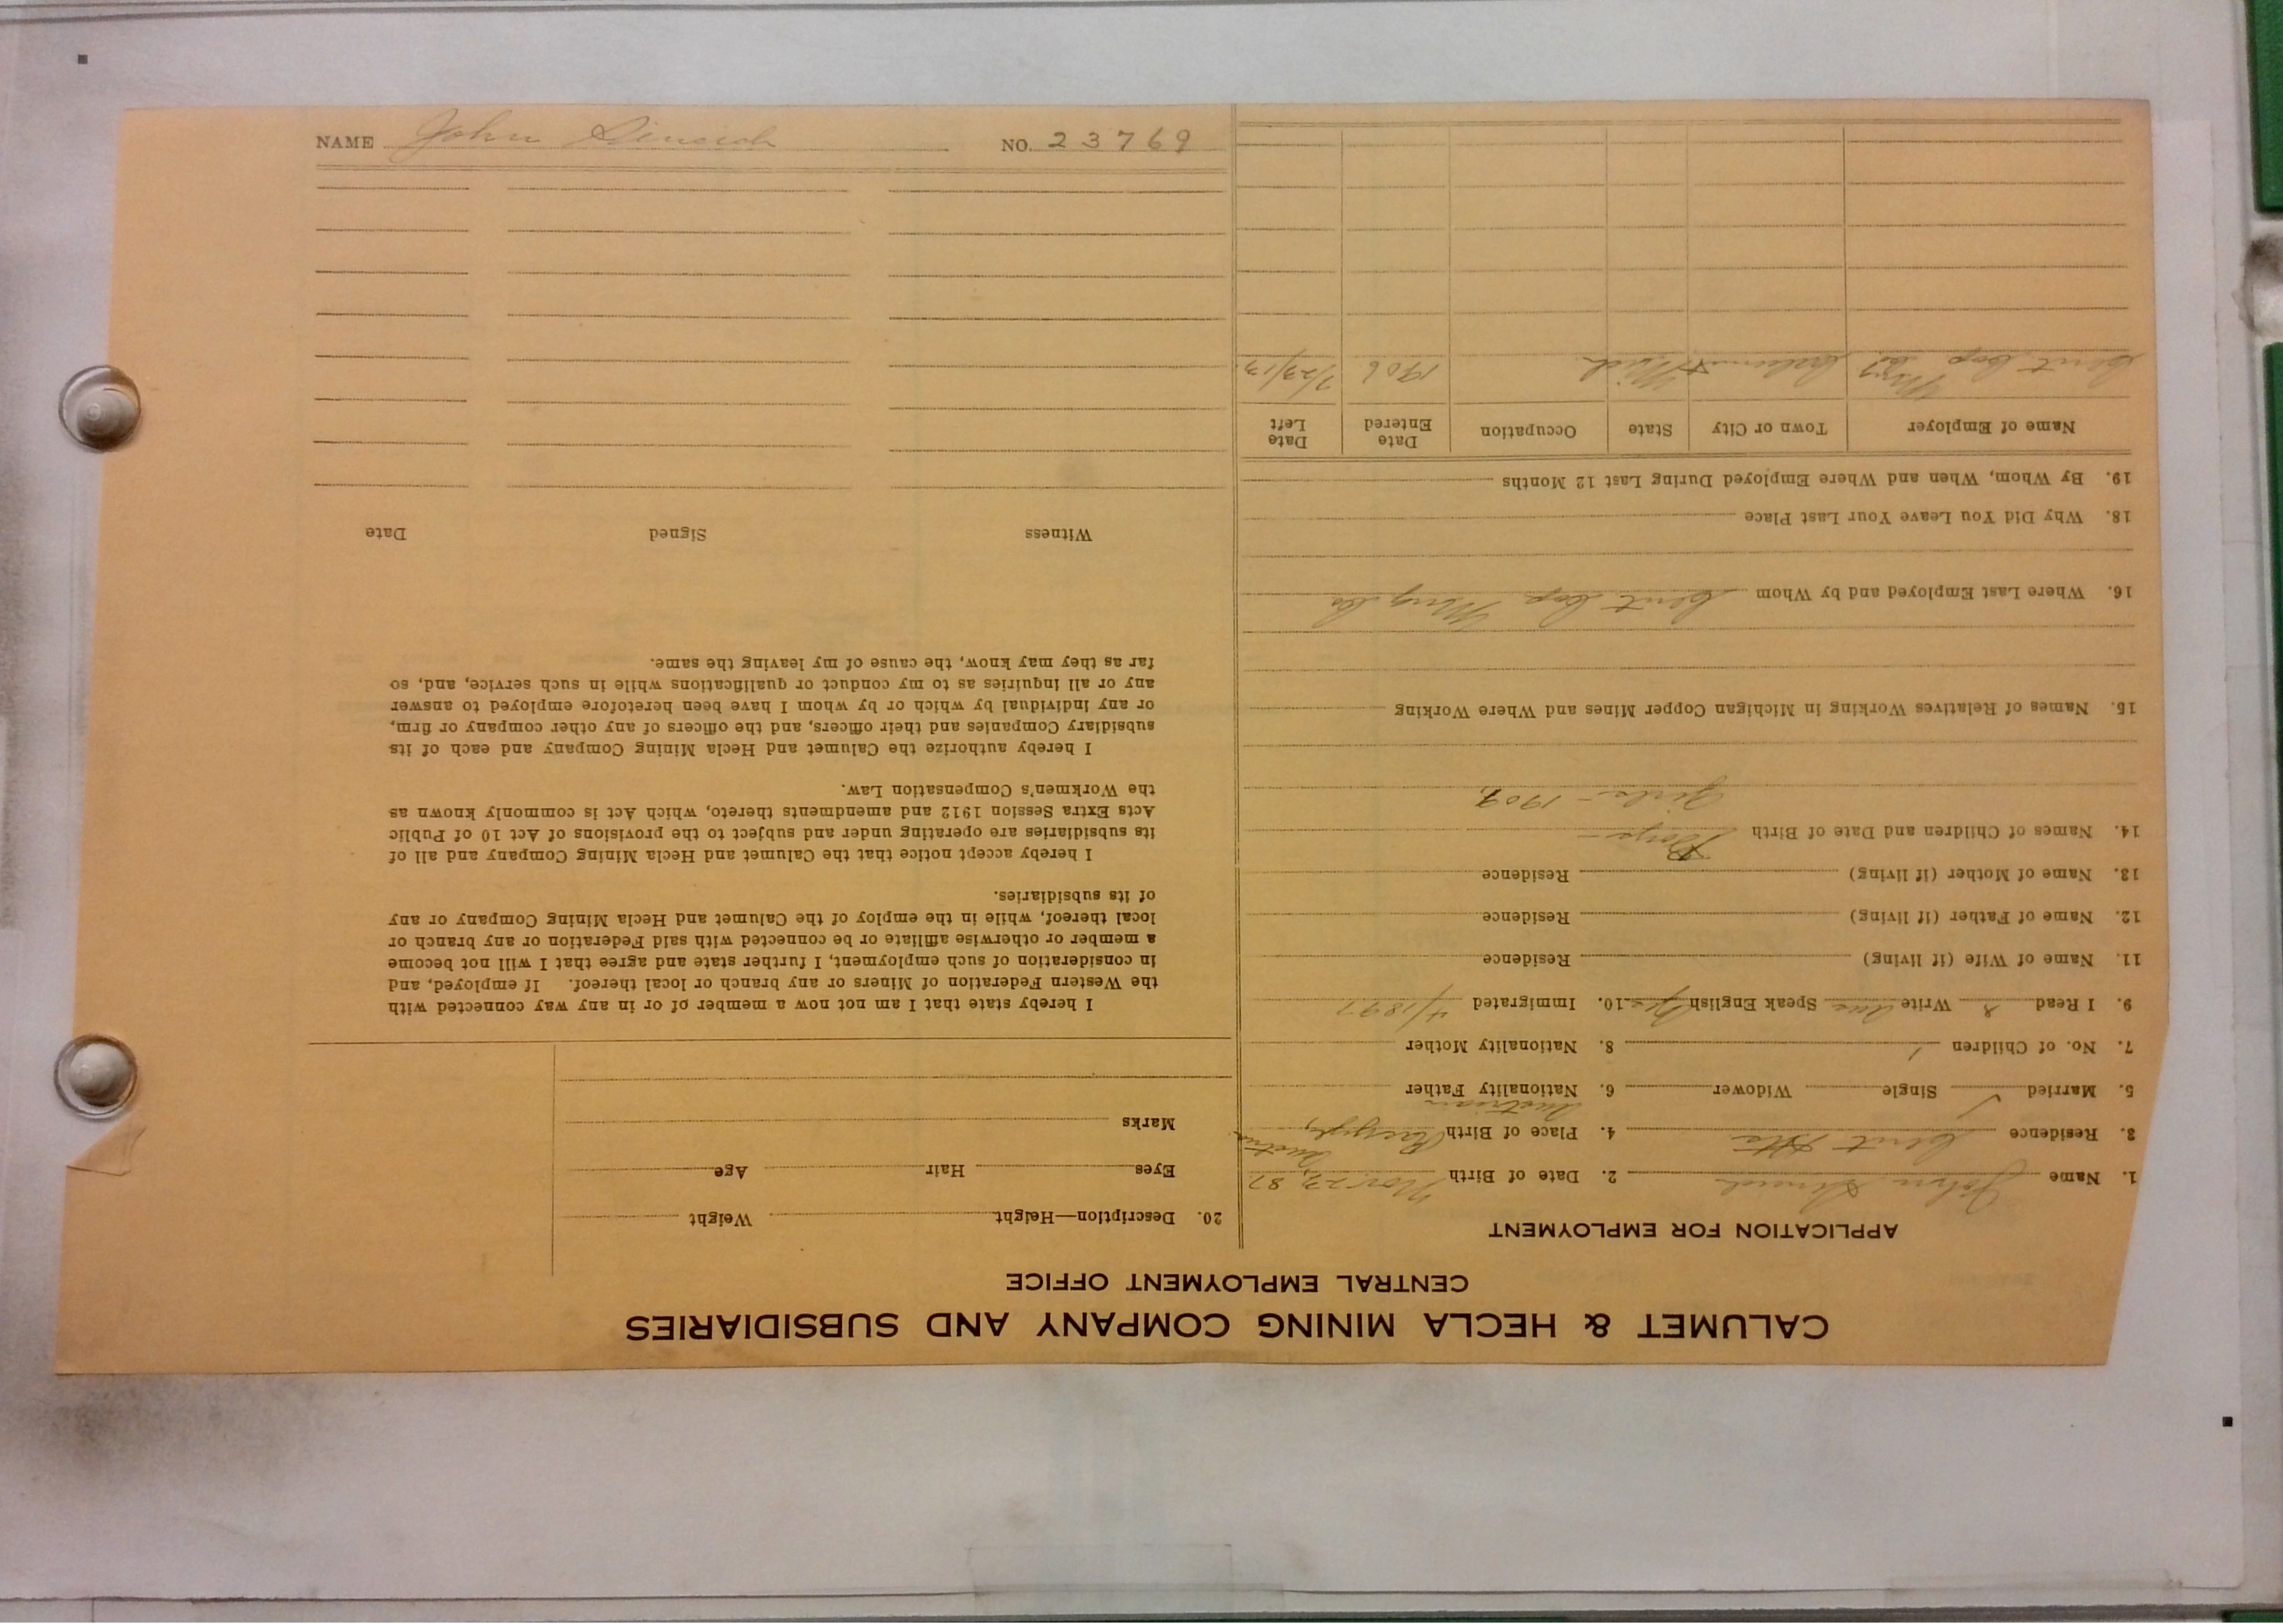 NAME John NO. 23769
CALUMET & HECLA MINING COMPANY AND SUBSIDIARIES
CENTRAL EMPLOYMENT OFFICE
APPLICATION FOR EMPLOYMENT
1. Name John 2. Date of Birth Nov. 23, 87
3. Residence 4. Place of Birth Austria
Austrian
5. Married ✓ Single Widower 6. Nationality Father
7. No. of Children 1 8. Nationality Mother
9. I Read & Write Aus Speak English Yes 10. Immigrated 4/1897
11. Name of Wife (if living) Residence
12. Name of Father (if living) Residence
13. Name of Mother (if living) Residence
14. Names of Children and Date of Birth Boys –
Girls – 1909
15. Names of Relatives Working in Michigan Copper Mines and Where Working
16. Where Last Employed and by Whom Cent. Cop Mng Co
18. Why Did You Leave Your Last Place
19. By Whom, When and Where Employed During Last 12 Months
Name of Employer Town or City State Occupation Date Entered Date Left
Cent. Cop Mng Co Calumet Mich 1906 7/23/13
20. Description—Height Weight
Eyes Hair Age
Marks
I hereby state that I am not now a member of or in any way connected with
the Western Federation of Miners or any branch or local thereof. If employed, and
in consideration of such employment, I further state and agree that I will not become
a member or otherwise affiliate or be connected with said Federation or any branch or
local thereof, while in the employ of the Calumet and Hecla Mining Company or any
of its subsidiaries.
I hereby accept notice that the Calumet and Hecla Mining Company and all of
its subsidiaries are operating under and subject to the provisions of Act 10 of Public
Acts Extra Session 1912 and amendments thereto, which Act is commonly known as
the Workmen's Compensation Law.
I hereby authorize the Calumet and Hecla Mining Company and each of its
subsidiary Companies and their officers, and the officers of any other company or firm,
or any individual by which or by whom I have been heretofore employed to answer
any or all inquiries as to my conduct or qualifications while in such service, and, so
far as they may know, the cause of my leaving the same.
Witness Signed Date